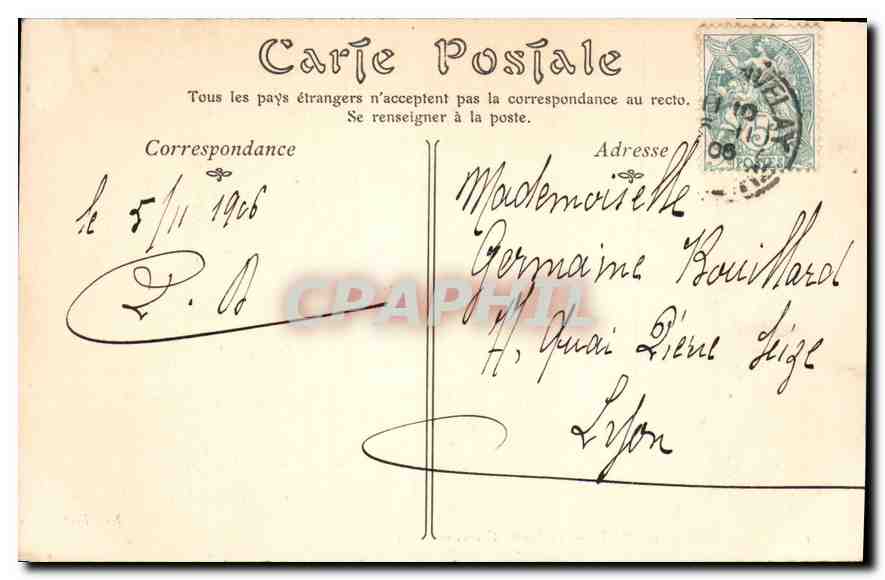 Carte Postale
Tous les pays étrangers n'acceptent pas la correspondance au recto.
Se renseigner à la poste.
Correspondance
Adresse
le 5/11 1906
Mademoiselle
Germaine Rouillard
Quai Pierre Seize
Lyon
CPAPHIL
5
POSTES
06